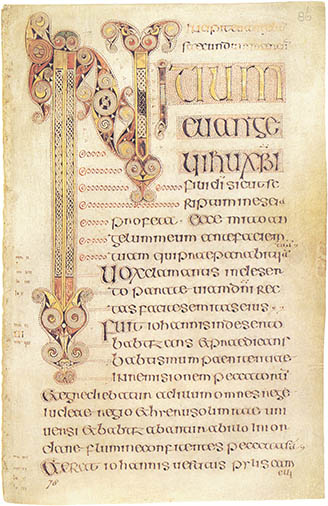 86
INITIUM
euange
lii ihu xpi
fili di sicut sc
riptum in esaia
profeta Ecce mitto an
gelum meum ante faciem
tuam qui praeparabit uiam
Uox clamantis in deser
to parate uiam dni rec
tas facite semitas eius
Fuit iohannis in deserto
babtizans et praedicans
babtismum paenitentiae
in remisionem peccatorū
et egrediebatur ad illum omnes
iudeae regio et hierusolimitae uni
uersi et babtizabantur ab illo in ior
dane flumine confitentes peccata sua
Et erat iohannis uestitus pylis cam
eli
78